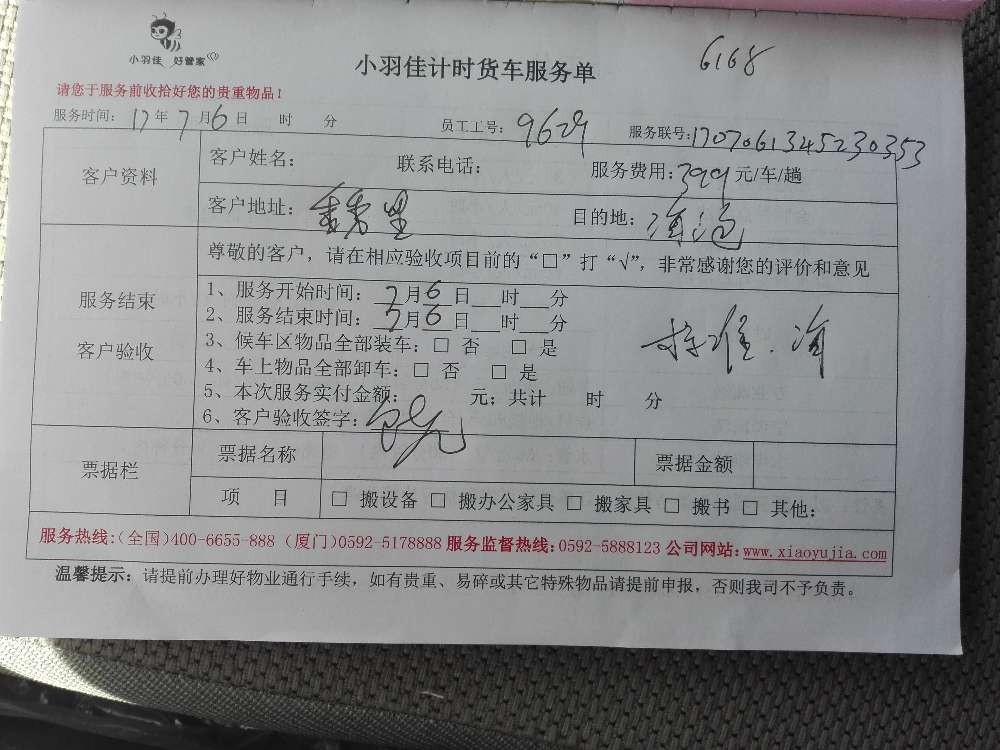 小羽佳 好管家
小羽佳计时货车服务单
6168
请您于服务前收拾好您的贵重物品!
服务时间: 17年7月6日 时 分 员工工号: 9629 服务联号: 1707061345230353
客户资料
客户姓名: 联系电话: 服务费用: 399元/车/趟
客户地址: 目的地:
服务结束
客户验收
尊敬的客户,请在相应验收项目前的“□”打“√”,非常感谢您的评价和意见
1、服务开始时间: 7月6日 时 分
2、服务结束时间: 7月6日 时 分
3、候车区物品全部装车: □ 否 □ 是
4、车上物品全部卸车: □ 否 □ 是
5、本次服务实付金额: 元; 共计 时 分
6、客户验收签字:
票据栏
票据名称 票据金额
项 目 □ 搬设备 □ 搬办公家具 □ 搬家具 □ 搬书 □ 其他:
服务热线:(全国)400-6655-888 (厦门)0592-5178888 服务监督热线:0592-5888123 公司网站:www.xiaoyujia.com
温馨提示: 请提前办理好物业通行手续,如有贵重、易碎或其它特殊物品请提前申报,否则我司不予负责。